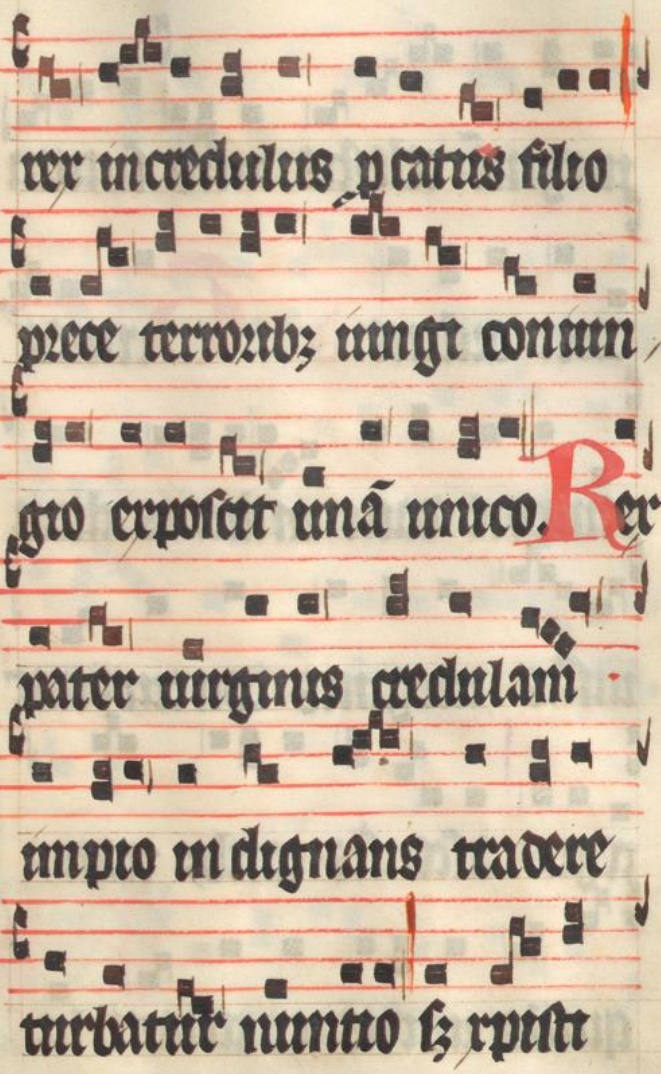 rex incredulus p catus filio
prece terroribꝫ iungi coniun
gio exposcit unā unico. Rex
pater uirginis credulam
impio indignans tradere
turbatur nuntio sꝫ xpisti